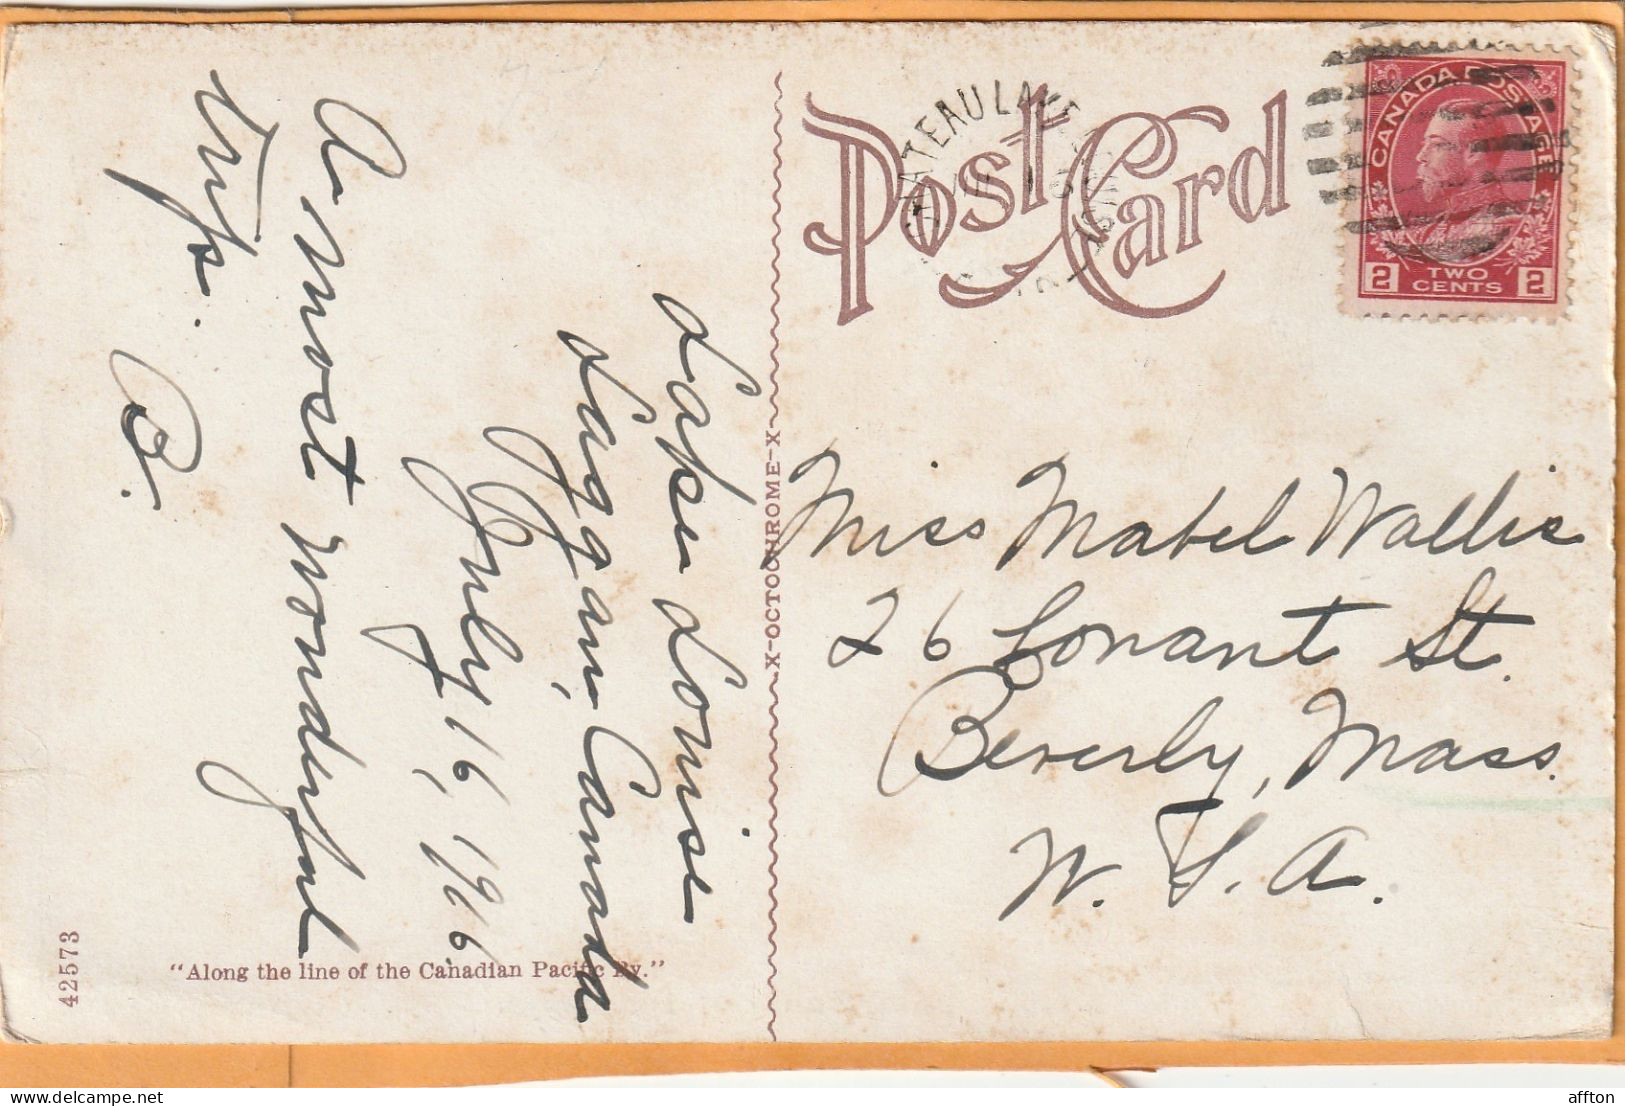 Post Card
CANADA POSTAGE
2 TWO CENTS 2
CHATEAU LAKE
Lake Louise
Laggan, Canada
July 16, 1916.
A most wonderful
trip.
B.
X-OCTOCHROME-X
Miss Mabel Wallis
26 Lonant St.
Beverly, Mass.
U. S. A.
"Along the line of the Canadian Pacific Ry."
42573
affton